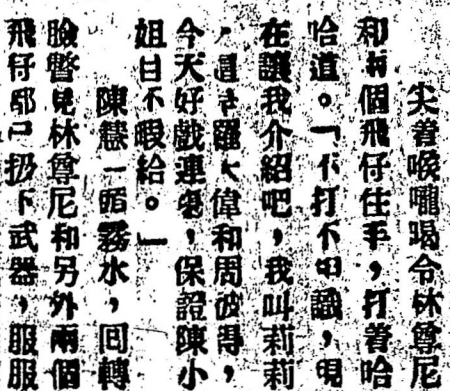 尖着喉嚨喝令林尊尼
和兩個飛仔住手，打着哈
哈道。「不打不相識，現
在讓我介紹吧，我叫莉莉
，這是羅大偉和周彼得，
今天好戲連場，保證陳小
姐目不暇給。」
陳慧一頭霧水，回轉
臉瞥見林尊尼和另外兩個
飛仔都已扔下武器，服服